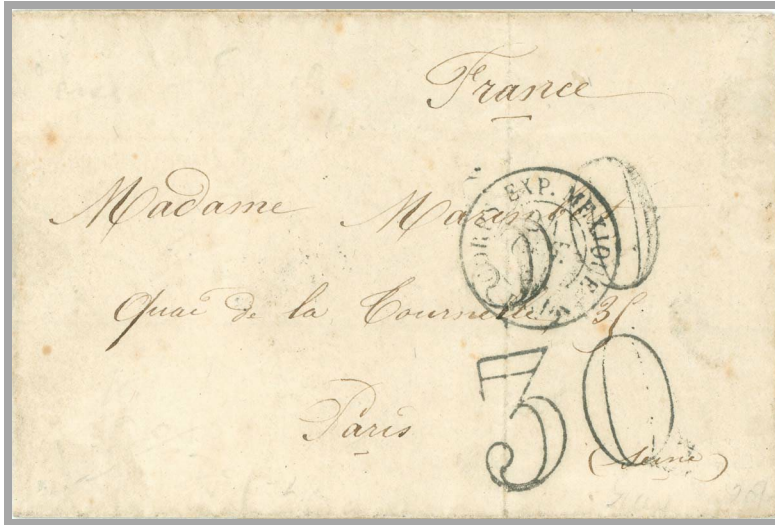 France
Madame
CORRES EXP. MEXIQUE
Quai de la Tournelle 35
30
Paris
(Seine)